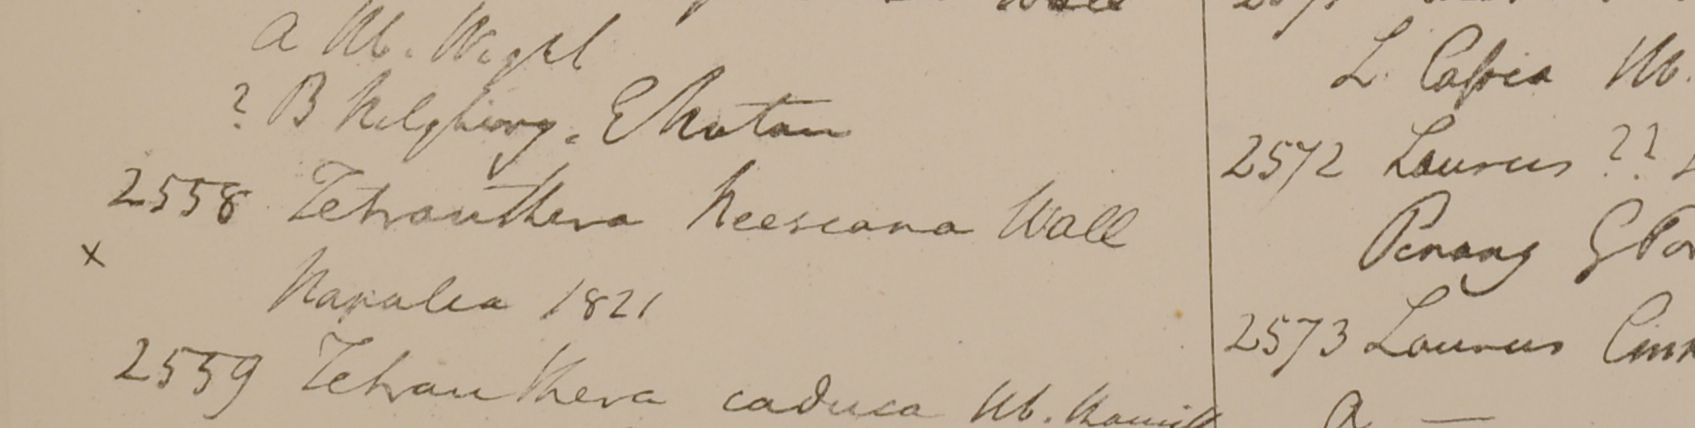 Wall
a Hb. Wight
? B Nilghiry. E Chatan
2558 Tetranthera Neesiana Wall
x
Napalia 1821
2559 Tetranthera caduca Hb. Hamilt
L. Cassia Hb.
2572 Laurus ??
Penang G Por
2573 Laurus Cinn
a —